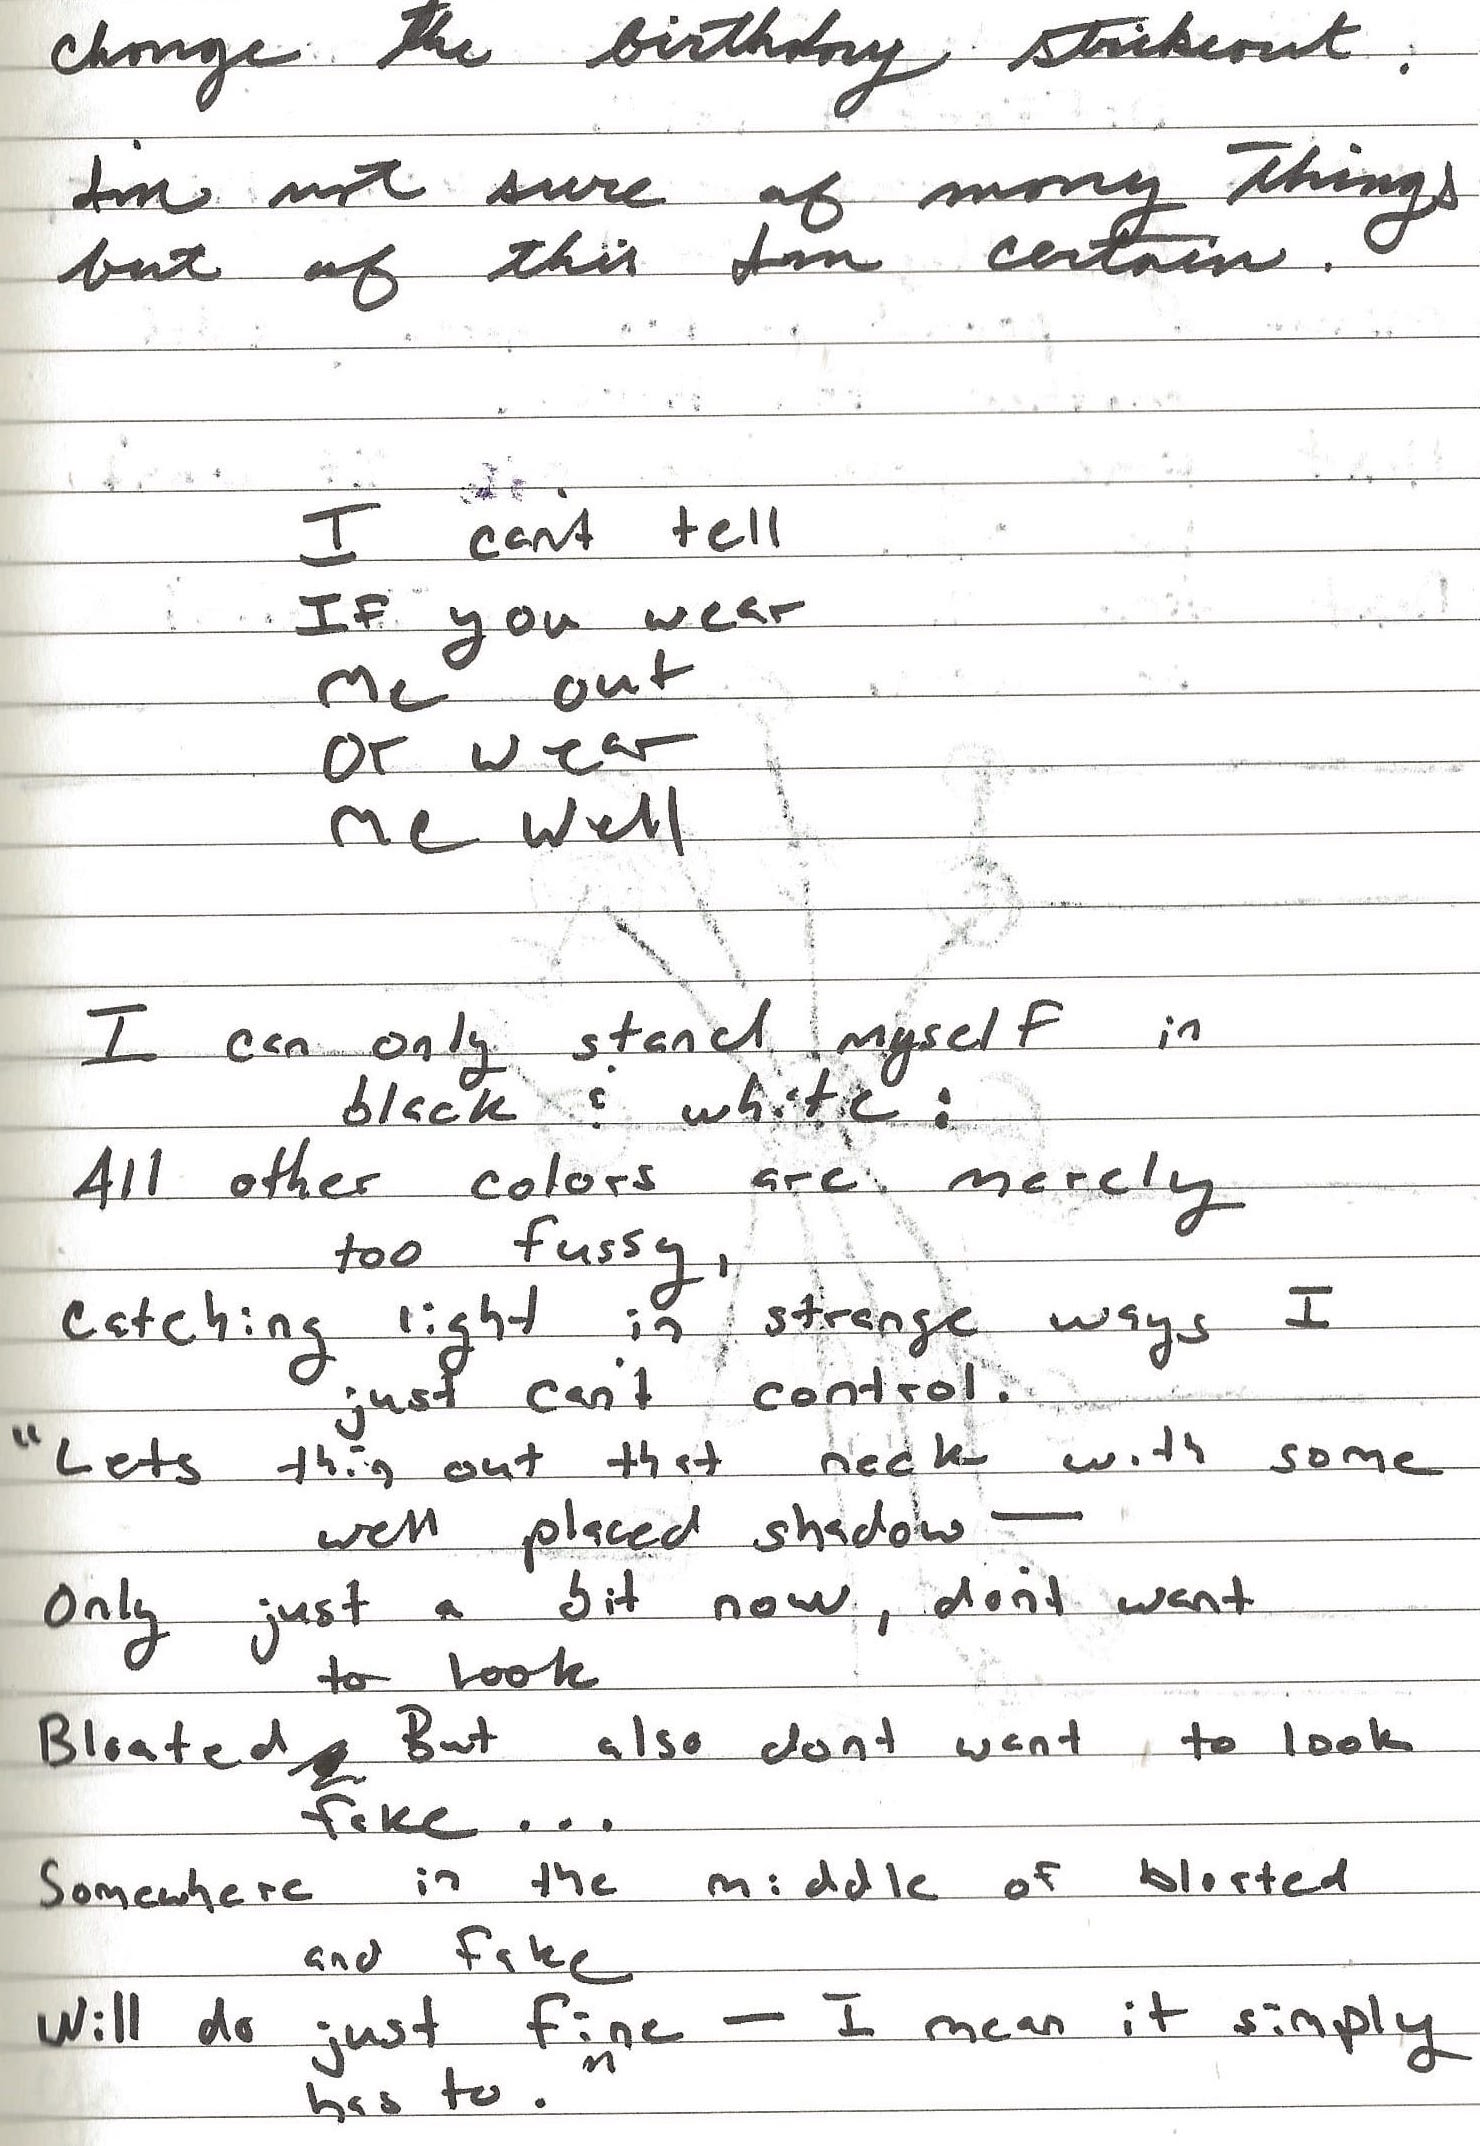 change the birthday strikeout.
I'm not sure of many things
but of this I'm certain.
I can't tell
If you wear
me out
or wear
me well
I can only stand myself in
black & white:
All other colors are merely
too fussy,
catching light in strange ways I
just can't control.
"Lets thin out that neck with some
well placed shadow—
Only just a bit now, don't want
to look
Bloated. But also dont want to look
fake...
Somewhere in the middle of bloated
and fake
Will do just fine — I mean it simply
has to."